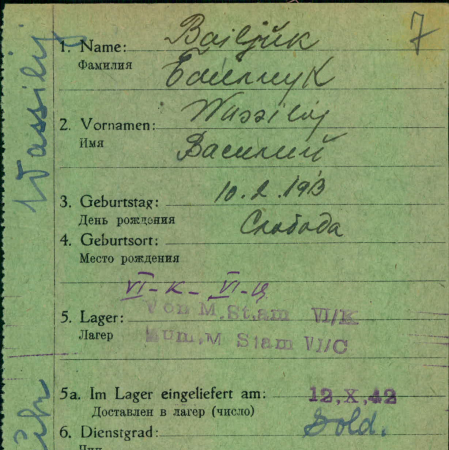 7
Wassilij
1. Name: Bojljuk
Фамилия Бойлиук
2. Vornamen: Wassilij
Имя Василий
3. Geburtstag: 10.2.193
День рождения
4. Geburtsort: Слобода
Место рождения
VI-K- VI-Ц
5. Lager: Von M. Stam VI/K
Лагер zum M Stam VI/C
5a. Im Lager eingeliefert am: 12.X.42
Доставлен в лагер (число)
6. Dienstgrad: Sold.
Чин